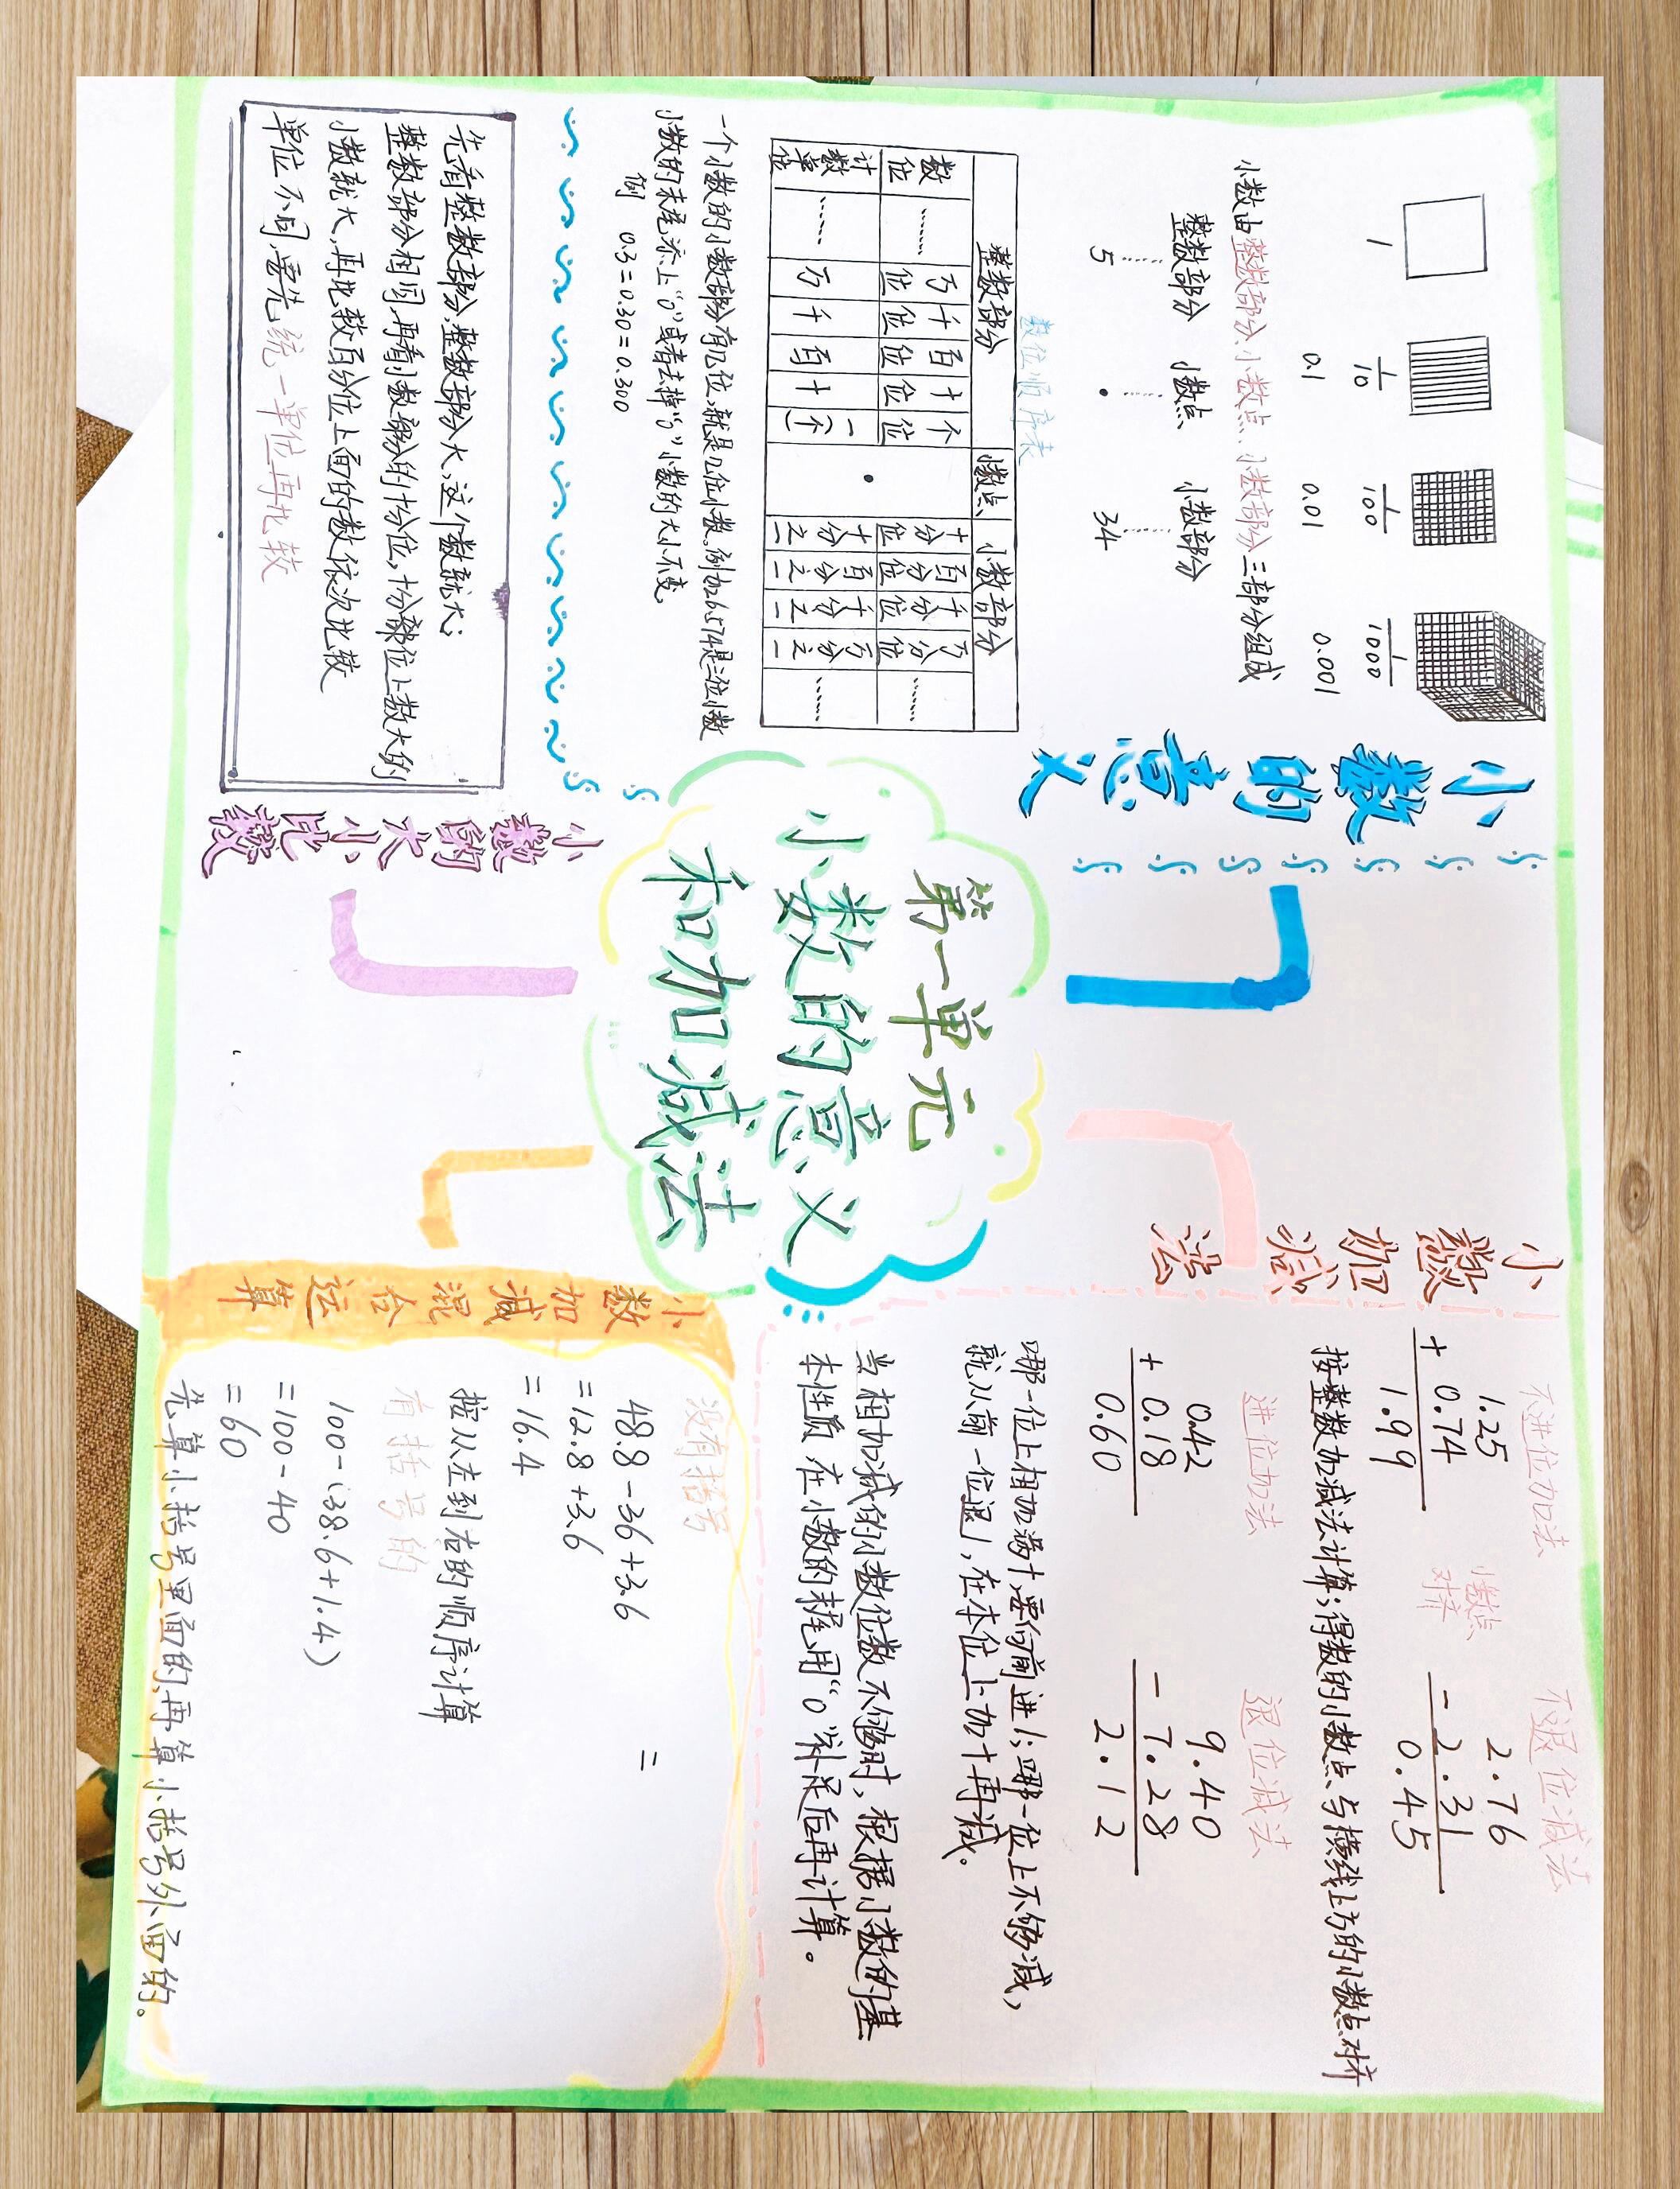 第一单元
小数的意义
和加减法
小数的意义
1
1/10
1/100
1/1000
0.1
0.01
0.001
小数由整数部分、小数点、小数部分三部分组成
整数部分 小数点 小数部分
5 . 34
数位顺序表
整数部分 小数点 小数部分
数位 …… 万位 千位 百位 十位 个位 · 十分位 百分位 千分位 万分位 ……
计数单位 …… 万 千 百 十 一(个) 十分之一 百分之一 千分之一 万分之一 ……
一个小数的小数部分有几位,就是几位小数。例如6.574是三位小数
小数的末尾添上“0”或者去掉“0”小数的大小不变。
例 0.3=0.30=0.300
小数的大小比较
先看整数部分,整数部分大,这个数就大;
整数部分相同,再看小数部分的十分位,十分部位上数大的
小数就大,再比较百分位上面的数依次比较
单位不同,要先统一单位再比较
小数加减法
不进位加法
1.25
+ 0.74
1.99
小数点
对齐
不退位减法
2.76
- 2.31
0.45
按整数加减法计算;得数的小数点与横线上方的小数点对齐
进位加法
0.42
+ 0.18
0.60
退位减法
9.40
- 7.28
2.12
哪一位上相加满十,要向前进1;哪一位上不够减,
就从前一位退1,在本位上加十再减。
当相加减的小数位数不够时,根据小数的基
本性质,在小数的末尾用“0”补足后再计算。
小数加减混合运算
没有括号
48.8-36+3.6 =
=12.8+3.6
=16.4
按从左到右的顺序计算
有括号的
100-(38.6+1.4)
=100-40
=60
先算小括号里面的,再算小括号外面的。